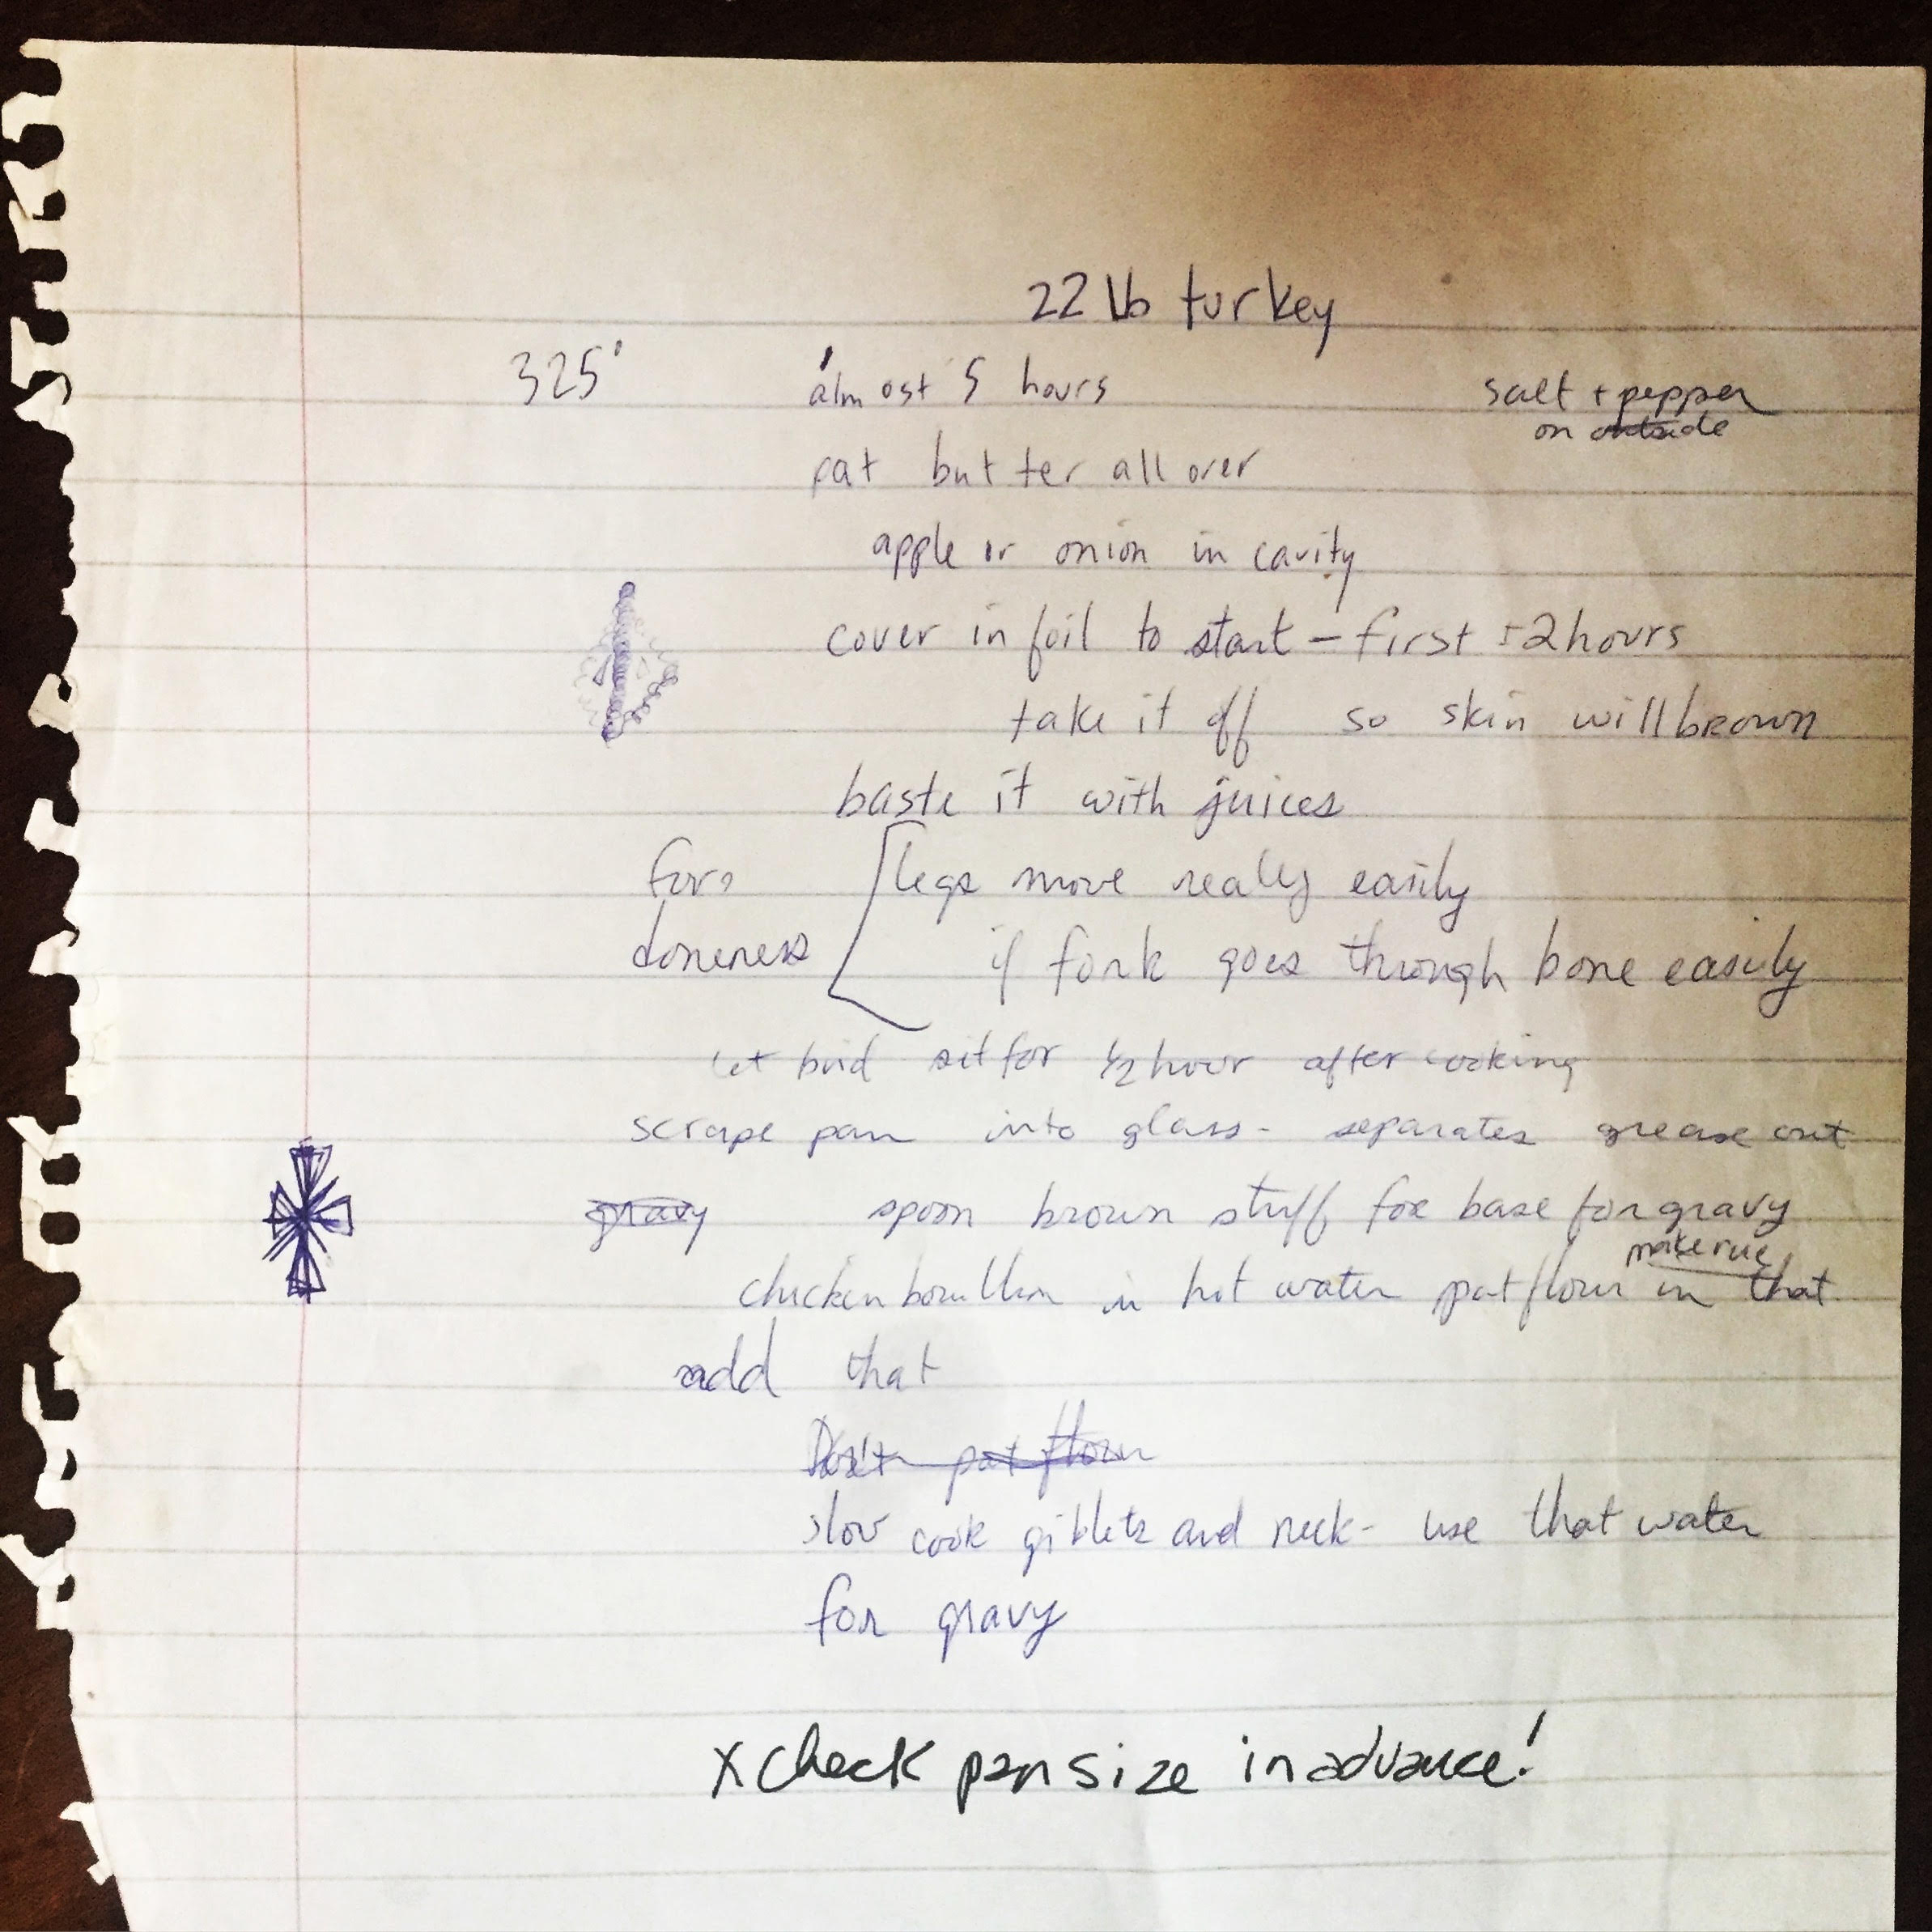 22 lb turkey
325° almost 5 hours
salt + pepper
on outside
pat butter all over
apple or onion in cavity
cover in foil to start - first 2 hours
take it off so skin will brown
baste it with juices
for legs move really easily
doneness if fork goes through bone easily
let bird sit for 1/2 hour after cooking
scrape pan into glass - separates grease out
gravy spoon brown stuff for base for gravy
make rue
chicken boullion in hot water pat flour in that
add that
Don't pat flour
slow cook giblets and neck - use that water
for gravy
x check pan size in advance!